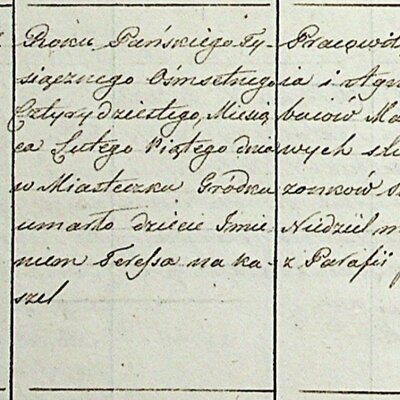 Roku Pańskiego Ty-
siącznego Ośmsetnego
Cztyrydziestego, Miesią
ca Lutego Piątego dnia
w Miasteczku Gródku
umarło dziecie Imie-
niem Teressa na ka-
szel
Pracowit
ia i Agn
baców Ma
wych slu
zonków
Niedziel m
z Parafii